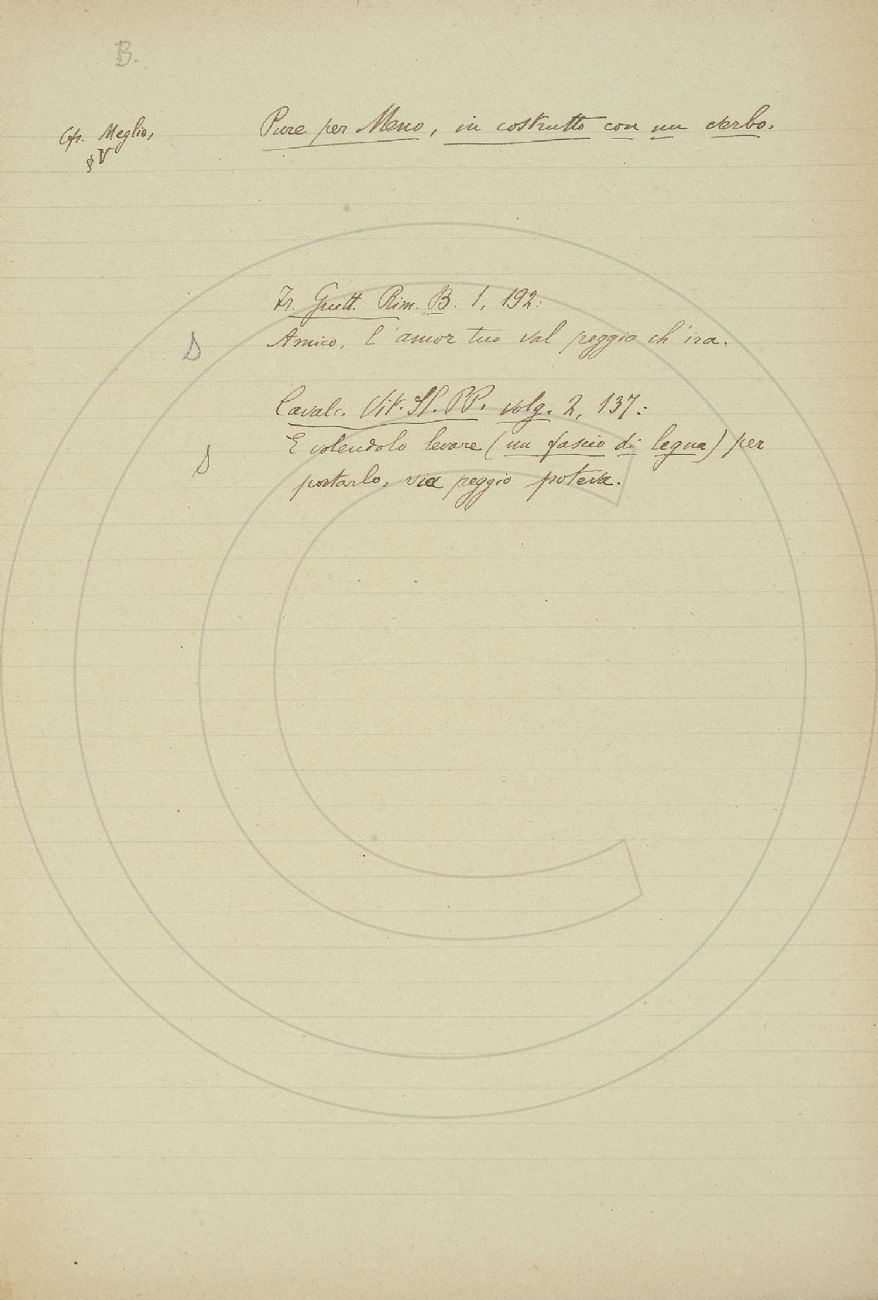 B.
Cfr. Meglio,
§ V
Pure per Meno, in costrutto con un verbo.
Fr. Guitt. Rim. B. 1, 192:
Amico, l'amor tuo val peggio ch'ira.
Cavalc. Vit. SS. PP. volg. 2, 137:
E volendolo levare (un fascio di legna) per
portarlo, via peggio poteva.